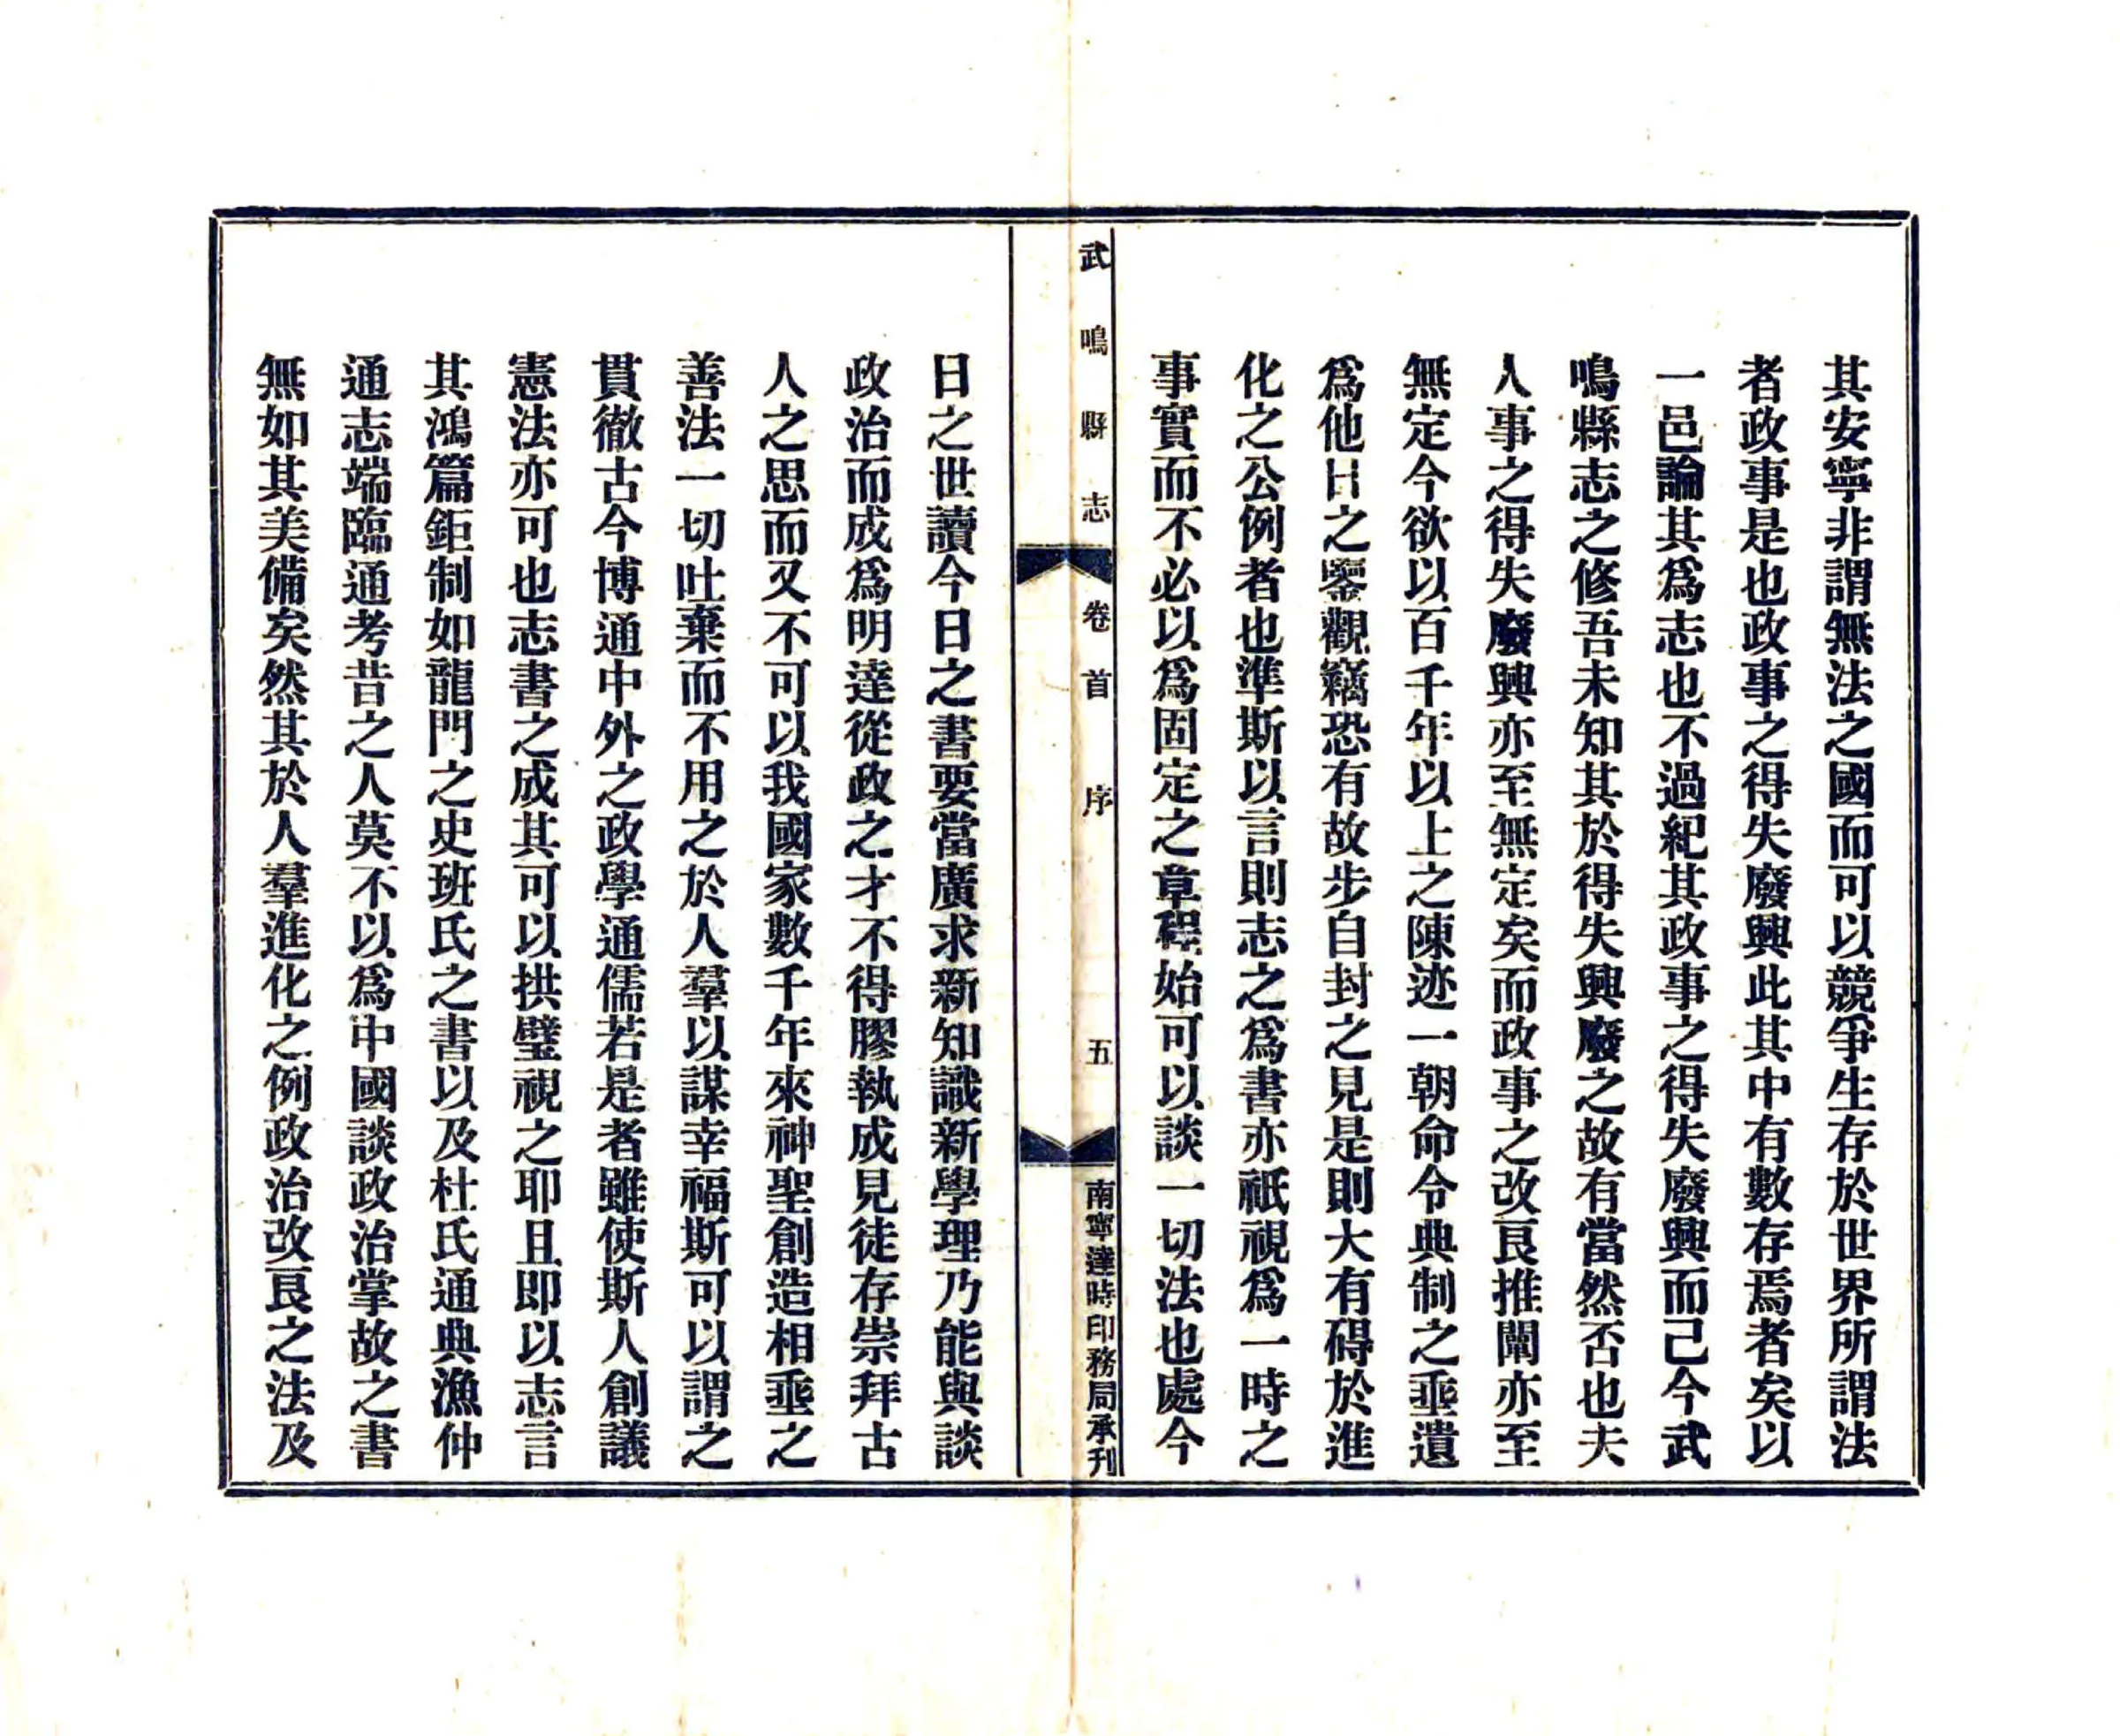 其安寧非謂無法之國而可以競爭生存於世界所謂法
者政事是也政事之得失廢興此其中有數存焉者矣以
一邑論其爲志也不過紀其政事之得失廢興而己今武
鳴縣志之修吾未知其於得失興廢之故有當然否也夫
人事之得失廢興亦至無定矣而政事之改良推闡亦至
無定今欲以百千年以上之陳迹一朝命令典制之垂遺
爲他日之鑒觀竊恐有故步自封之見是則大有碍於進
化之公例者也準斯以言則志之爲書亦祇視爲一時之
事實而不必以爲固定之章程始可以談一切法也處今
武鳴縣志 卷首 序 五 南寧達時印務局承刊
日之世讀今日之書要當廣求新知識新學理乃能與談
政治而成爲明達從政之才不得膠執成見徒存崇拜古
人之思而又不可以我國家數千年來神聖創造相垂之
善法一切吐棄而不用之於人羣以謀幸福斯可以謂之
貫徹古今博通中外之政學通儒若是者雖使斯人創議
憲法亦可也志書之成其可以拱璧視之耶且即以志言
其鴻篇鉅制如龍門之史班氏之書以及杜氏通典漁仲
通志端臨通考昔之人莫不以爲中國談政治掌故之書
無如其美備矣然其於人羣進化之例政治改良之法及